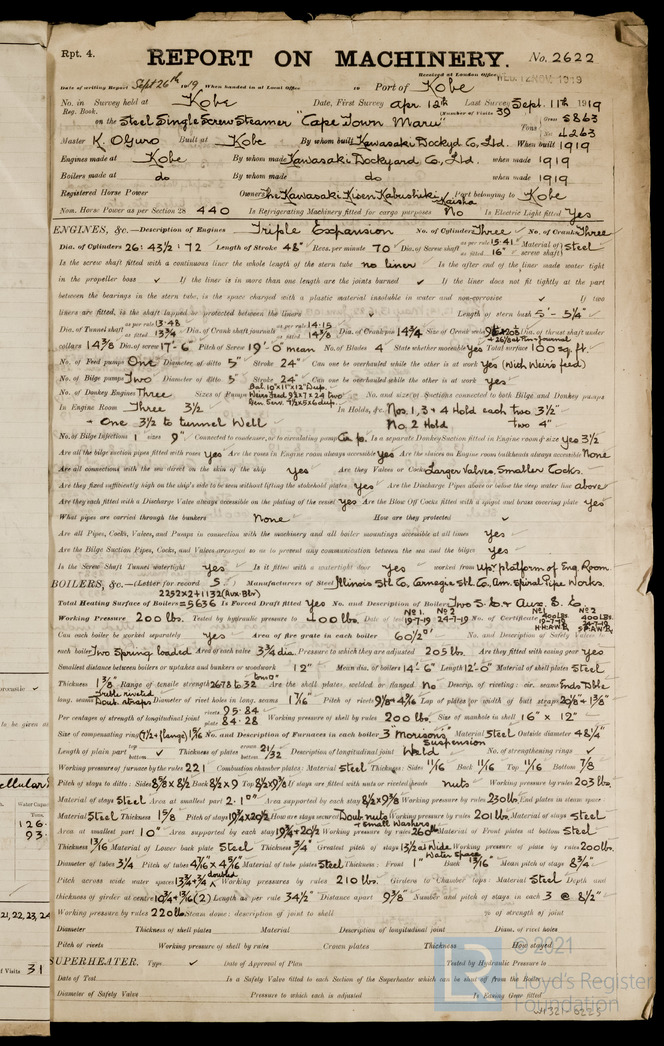 Rpt. 4.
REPORT ON MACHINERY.
No. 2622
Received at London Office WED. 12 NOV. 1919
Date of writing Report Sept 26th 1919 When handed in at Local Office 19 Port of Kobe
No. in Survey held at Kobe Date, First Survey Apr. 12th Last Survey Sept. 11th 1919
Reg. Book. (Number of Visits 39
on the Steel Single Screw Steamer "Cape Town Maru" Tons Gross 5863 Net 4263
Master K. Oguro Built at Kobe By whom built Kawasaki Dockyd Co, Ltd. When built 1919
Engines made at Kobe By whom made Kawasaki Dockyard Co, Ltd. when made 1919
Boilers made at do By whom made do when made 1919
Registered Horse Power Owners The Kawasaki Kisen Kabushiki Kaisha Port belonging to Kobe
Nom. Horse Power as per Section 28 440 Is Refrigerating Machinery fitted for cargo purposes No Is Electric Light fitted Yes
ENGINES, &c.—Description of Engines Triple Expansion No. of Cylinders Three No. of Cranks Three
Dia. of Cylinders 26: 43½: 72 Length of Stroke 48" Revs. per minute 70 Dia. of Screw shaft as per rule 15.41 as fitted 16" Material of screw shaft Steel
Is the screw shaft fitted with a continuous liner the whole length of the stern tube no liner Is the after end of the liner made water tight
in the propeller boss ✓ If the liner is in more than one length are the joints burned ✓ If the liner does not fit tightly at the part
between the bearings in the stern tube, is the space charged with a plastic material insoluble in water and non-corrosive ✓ If two
liners are fitted, is the shaft lapped or protected between the liners ✓ Length of stern bush 5'-5¼"
Dia. of Tunnel shaft as per rule 13.48 as fitted 13¾ Dia. of Crank shaft journals as per rule 14.15 as fitted 14⅜ Dia. of Crank pin 14¾ Size of Crank webs Dia. of thrust shaft under
collars 14⅜ Dia. of screw 17'-6" Pitch of Screw 19'-0" mean No. of Blades 4 State whether moveable yes Total surface 100 sq. ft.
No. of Feed pumps One Diameter of ditto 5" Stroke 24" Can one be overhauled while the other is at work yes (with Weirs feed)
No. of Bilge pumps Two Diameter of ditto 5" Stroke 24" Can one be overhauled while the other is at work yes
No. of Donkey Engines Three Sizes of Pumps Bal. 10"x11"x12" Dup. Weirs Feed 9½x7x24 two Gen Serv. 7½x5x6 dup. No. and size of Suctions connected to both Bilge and Donkey pumps
In Engine Room Three 3½ In Holds, &c. Nos. 1, 3 & 4 Hold each two 3½"
- One 3½ to tunnel Well No. 2 Hold two 4"
No. of Bilge Injections 1 sizes 9" Connected to condenser, or to circulating pump Ca. p. Is a separate Donkey Suction fitted in Engine room & size yes 3½
Are all the bilge suction pipes fitted with roses yes Are the roses in Engine room always accessible yes Are the sluices on Engine room bulkheads always accessible None
Are all connections with the sea direct on the skin of the ship yes Are they Valves or Cocks Larger Valves, Smaller Cocks.
Are they fixed sufficiently high on the ship's side to be seen without lifting the stokehold plates yes Are the Discharge Pipes above or below the deep water line above
Are they each fitted with a Discharge Valve always accessible on the plating of the vessel yes Are the Blow Off Cocks fitted with a spigot and brass covering plate yes
What pipes are carried through the bunkers None How are they protected ✓
Are all Pipes, Cocks, Valves, and Pumps in connection with the machinery and all boiler mountings accessible at all times yes
Are the Bilge Suction Pipes, Cocks, and Valves arranged so as to prevent any communication between the sea and the bilges yes
Is the Screw Shaft Tunnel watertight yes Is it fitted with a watertight door yes worked from Upr. platform of Eng. Room
BOILERS, &c.—(Letter for record S) Manufacturers of Steel Illinois Stl. Co, Carnegie Stl. Co. Am. Spiral Pipe Works.
2252x2+1132 (Aux. Blr)
Total Heating Surface of Boilers =5636 Is Forced Draft fitted Yes No. and Description of Boilers Two S. E. & Aux. S. E.
Working Pressure 200 lbs. Tested by hydraulic pressure to 400 lbs. Date of test No 1. 19-7-19 No 2 24-7-19 No. of Certificate
Can each boiler be worked separately yes Area of fire grate in each boiler 60½ No. and Description of Safety Valves to
each boiler Two Spring loaded Area of each valve 3¾ dia. Pressure to which they are adjusted 205 lbs. Are they fitted with easing gear yes
Smallest distance between boilers or uptakes and bunkers or woodwork 12" Mean dia. of boilers 14'-6" Length 12'-0" Material of shell plates Steel
Thickness 1⅜ Range of tensile strength 26.78 to 32 Are the shell plates welded or flanged No Descrip. of riveting: cir. seams Ends Dble
long. seams Treble riveted Doub. straps Diameter of rivet holes in long. seams 1 7/16" Pitch of rivets Lap of plates or width of butt straps
Per centages of strength of longitudinal joint rivets 95.84 plate 84.28 Working pressure of shell by rules 200 lbs. Size of manhole in shell 16" x 12"
Size of compensating ring No. and Description of Furnaces in each boiler 3 Morisons Suspension Material Steel Outside diameter 48¼"
Length of plain part top bottom ✓ Thickness of plates crown bottom 21/32 Description of longitudinal joint Weld No. of strengthening rings ✓
Working pressure of furnace by the rules 221 Combustion chamber plates: Material Steel Thickness: Sides 11/16 Back 11/16 Top 11/16 Bottom 7/8
Pitch of stays to ditto: Sides 8⅝x8½ Back 8½x9 Top 8½x9⅜ If stays are fitted with nuts or riveted heads nuts Working pressure by rules 203 lbs.
Material of stays Steel Area at smallest part 2.1 Area supported by each stay 8½x9⅜ Working pressure by rules 230 lbs. End plates in steam space
Material Steel Thickness 1⅝ Pitch of stays 19¾x20½ How are stays secured Doub. nuts & small Washers Working pressure by rules 201 lbs. Material of stays Steel
Area at smallest part 10" Area supported by each stay 19¾+20½ Working pressure by rules 260 Material of Front plates at bottom Steel
Thickness 13/16 Material of Lower back plate Steel Thickness ¾" Greatest pitch of stays 13½ at Wide Water Space Working pressure of plate by rules 200 lbs.
Diameter of tubes 3¼ Pitch of tubes 4 7/16 x 4 5/16 Material of tube plates Steel Thickness: Front 1" Back 13/16" Mean pitch of stays 8¾"
Pitch across wide water spaces doubled Working pressures by rules 210 lbs. Girders to Chamber tops: Material Steel Depth and
thickness of girder at centre Length as per rule 34½" Distance apart 9⅜" Number and pitch of stays in each 3 @ 8½"
Working pressure by rules 220 lbs Steam dome: description of joint to shell % of strength of joint
Diameter Thickness of shell plates Material Description of longitudinal joint Diam. of rivet holes
Pitch of rivets Working pressure of shell by rules Crown plates Thickness How stayed
SUPERHEATER. Type ✓ Date of Approval of Plan Tested by Hydraulic Pressure to
Date of Test Is a Safety Valve fitted to each Section of the Superheater which can be shut off from the Boiler
Diameter of Safety Valve Pressure to which each is adjusted Is Easing Gear fitted
© 2021
Lloyd's Register
Foundation
W1321-0225